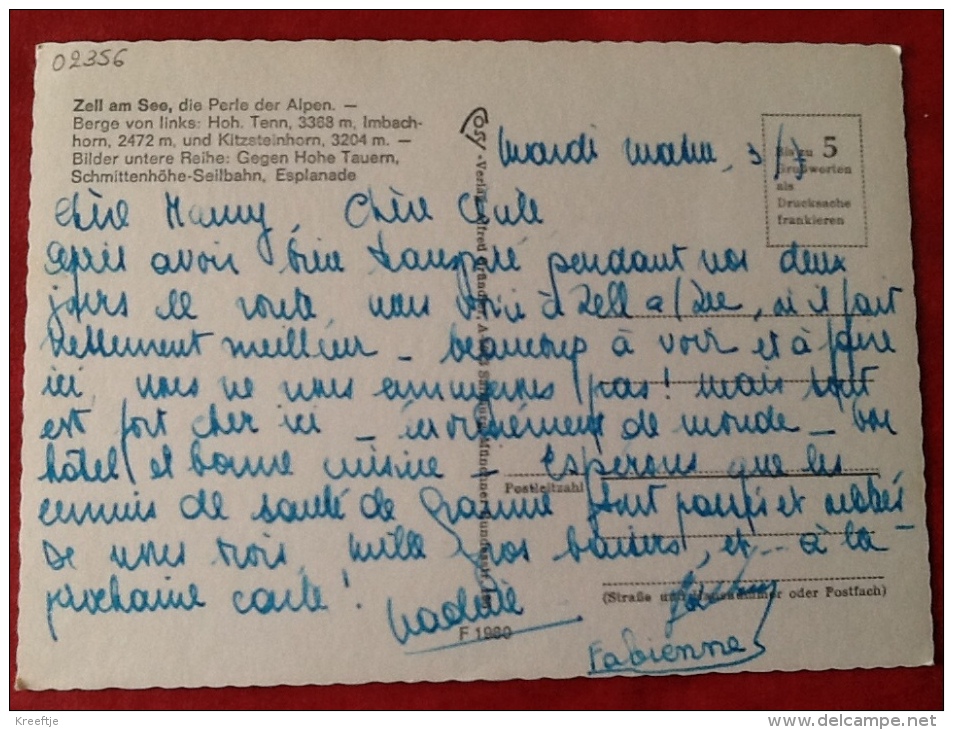 02356
Zell am See, die Perle der Alpen. —
Berge von links: Hoh. Tenn, 3368 m, Imbach-
horn, 2472 m, und Kitzsteinhorn, 3204 m. —
Bilder untere Reihe: Gegen Hohe Tauern,
Schmittenhöhe-Seilbahn, Esplanade
Cosy - Verlag Alfred Gründler
mardi matin, 3/7
Bis zu 5
Grußworten
als
Drucksache
frankieren
Chère Mamy, Chère
après avoir bien pendant nos deux
jours de route, nous voici à Zell a/See, où il fait
tellement meilleur – beaucoup à voir et à faire
ici, nous ne nous ennuierons pas! mais tout
est fort cher ici – énormément de monde – bon
hôtel et bonne cuisine – Espérons que les
ennuis de santé de sont passés et
De nous trois, mille gros baisers, et... à la
prochaine carte!
Postleitzahl
(Straße und Hausnummer oder Postfach)
F 1980
Fabienne
Kreeftje
www.delcampe.net